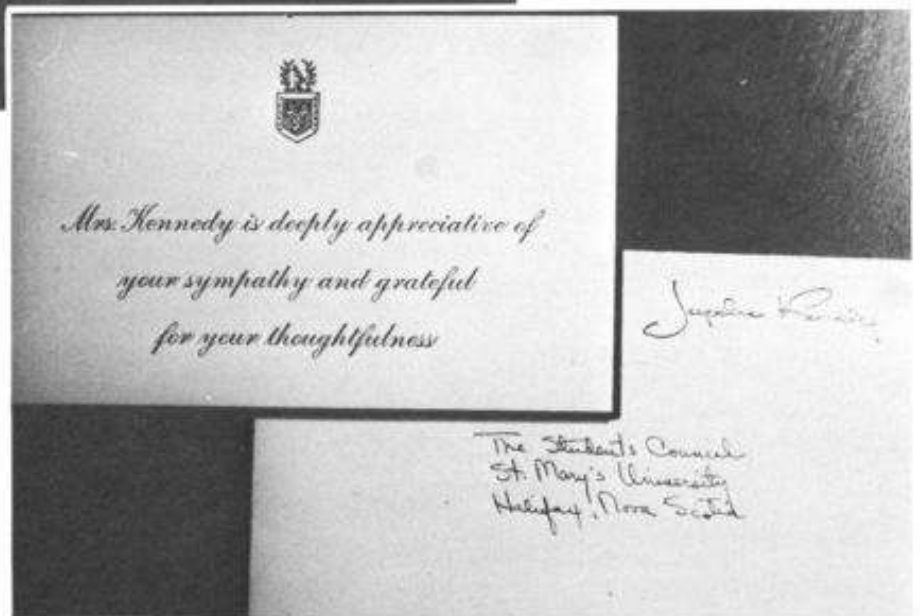 Mrs. Kennedy is deeply appreciative of
your sympathy and grateful
for your thoughtfulness
Jacqueline Kennedy
The Students Council
St. Mary's University
Halifax, Nova Scotia